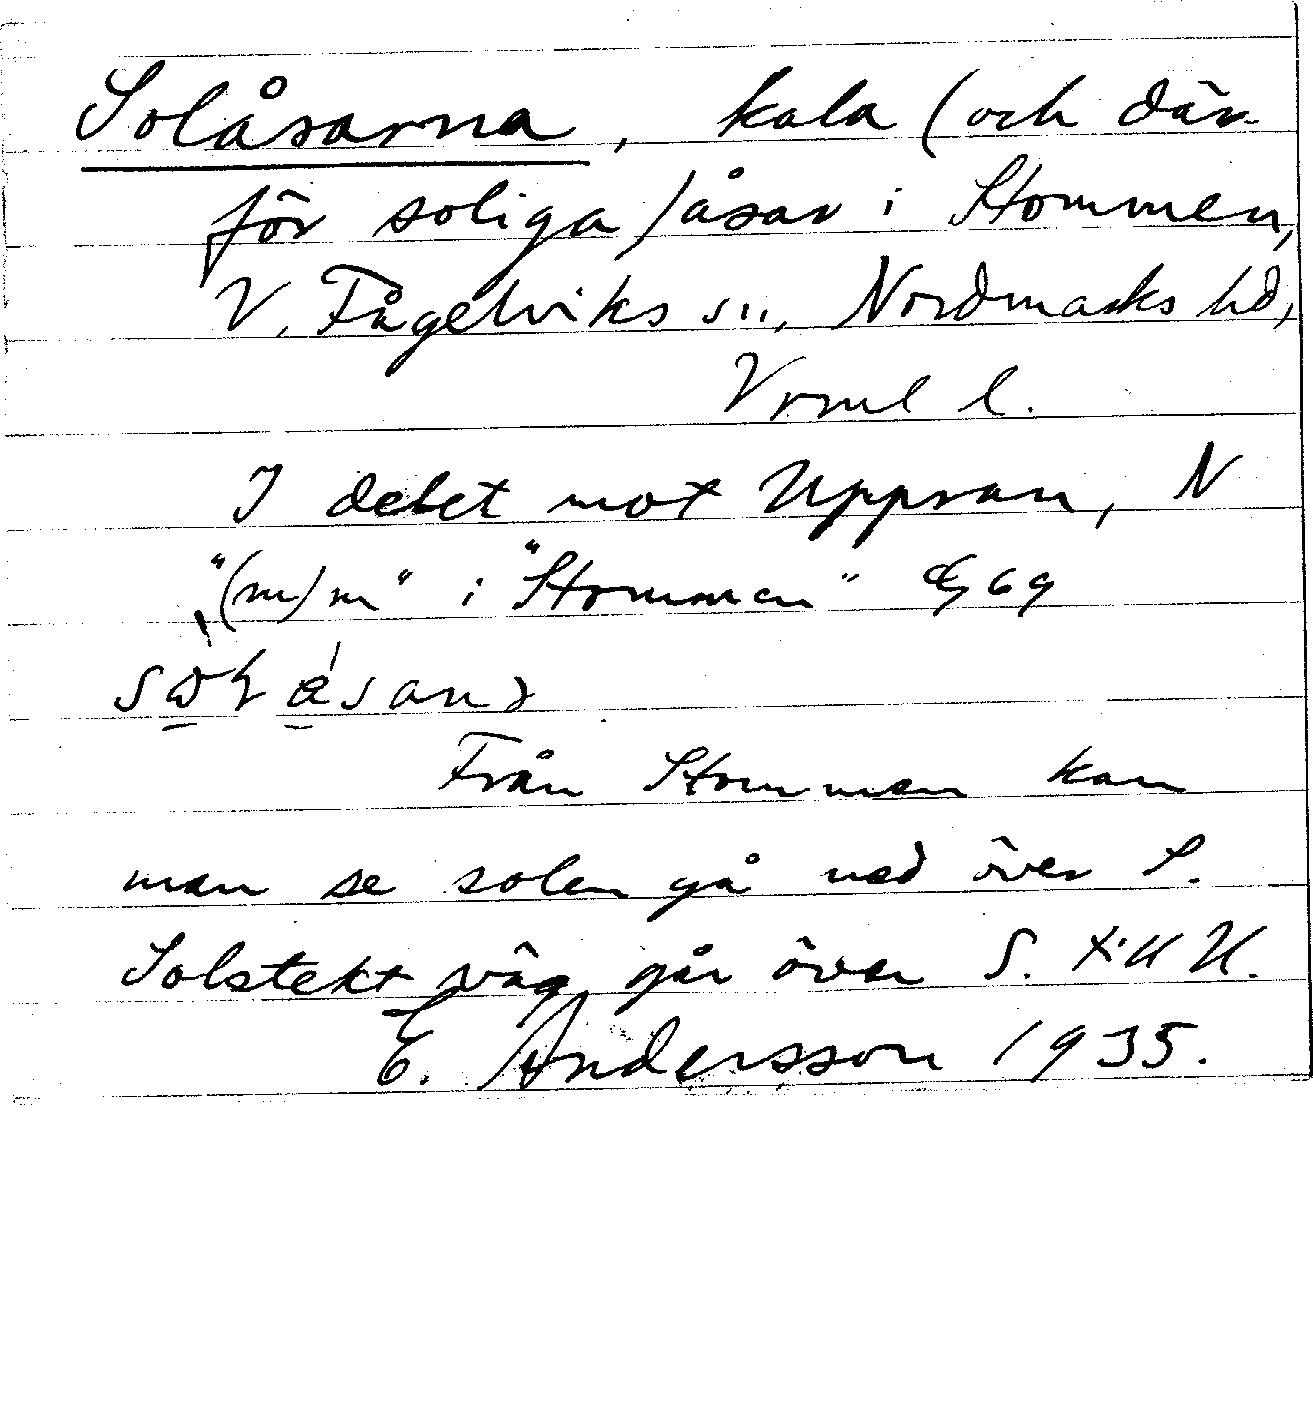 Solåsarna, kala (och där-
för soliga) åsar i Stommen,
V. Fågelviks sn., Nordmarks hd,
Vrml l.
I delet mot Uppsran, N
"(m) m" i "Stommen" Eg 69
Från Stommen kan
man se solen gå ned över S.
Solstekt väg går över S. till U.
E. Andersson 1935.